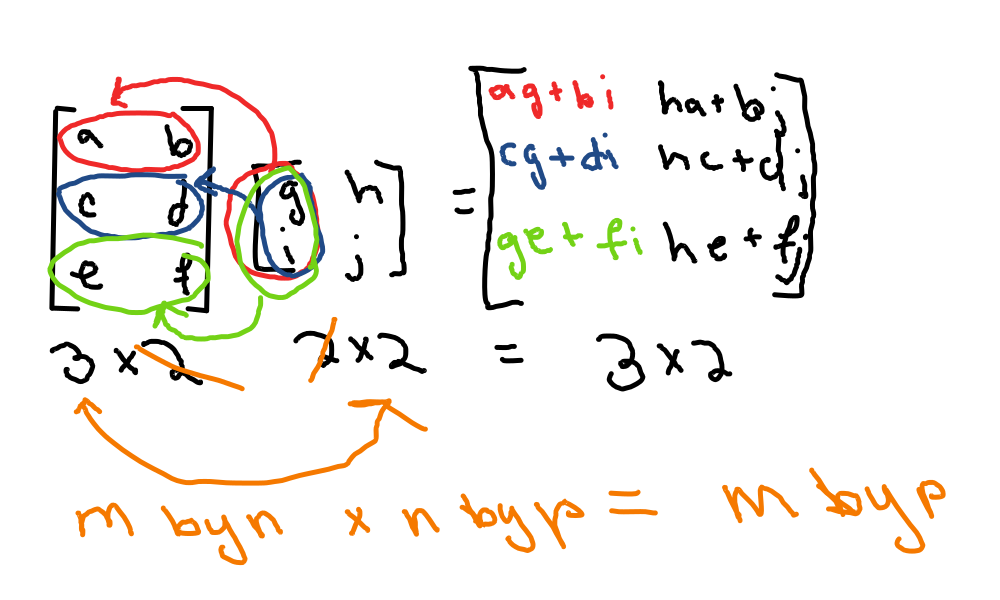 a b
c d
e f
g h
i j
=
ag+bi ha+bj
cg+di hc+dj
ge+fi he+fj
3x2 2x2 = 3x2
m by n x n by p = m by p